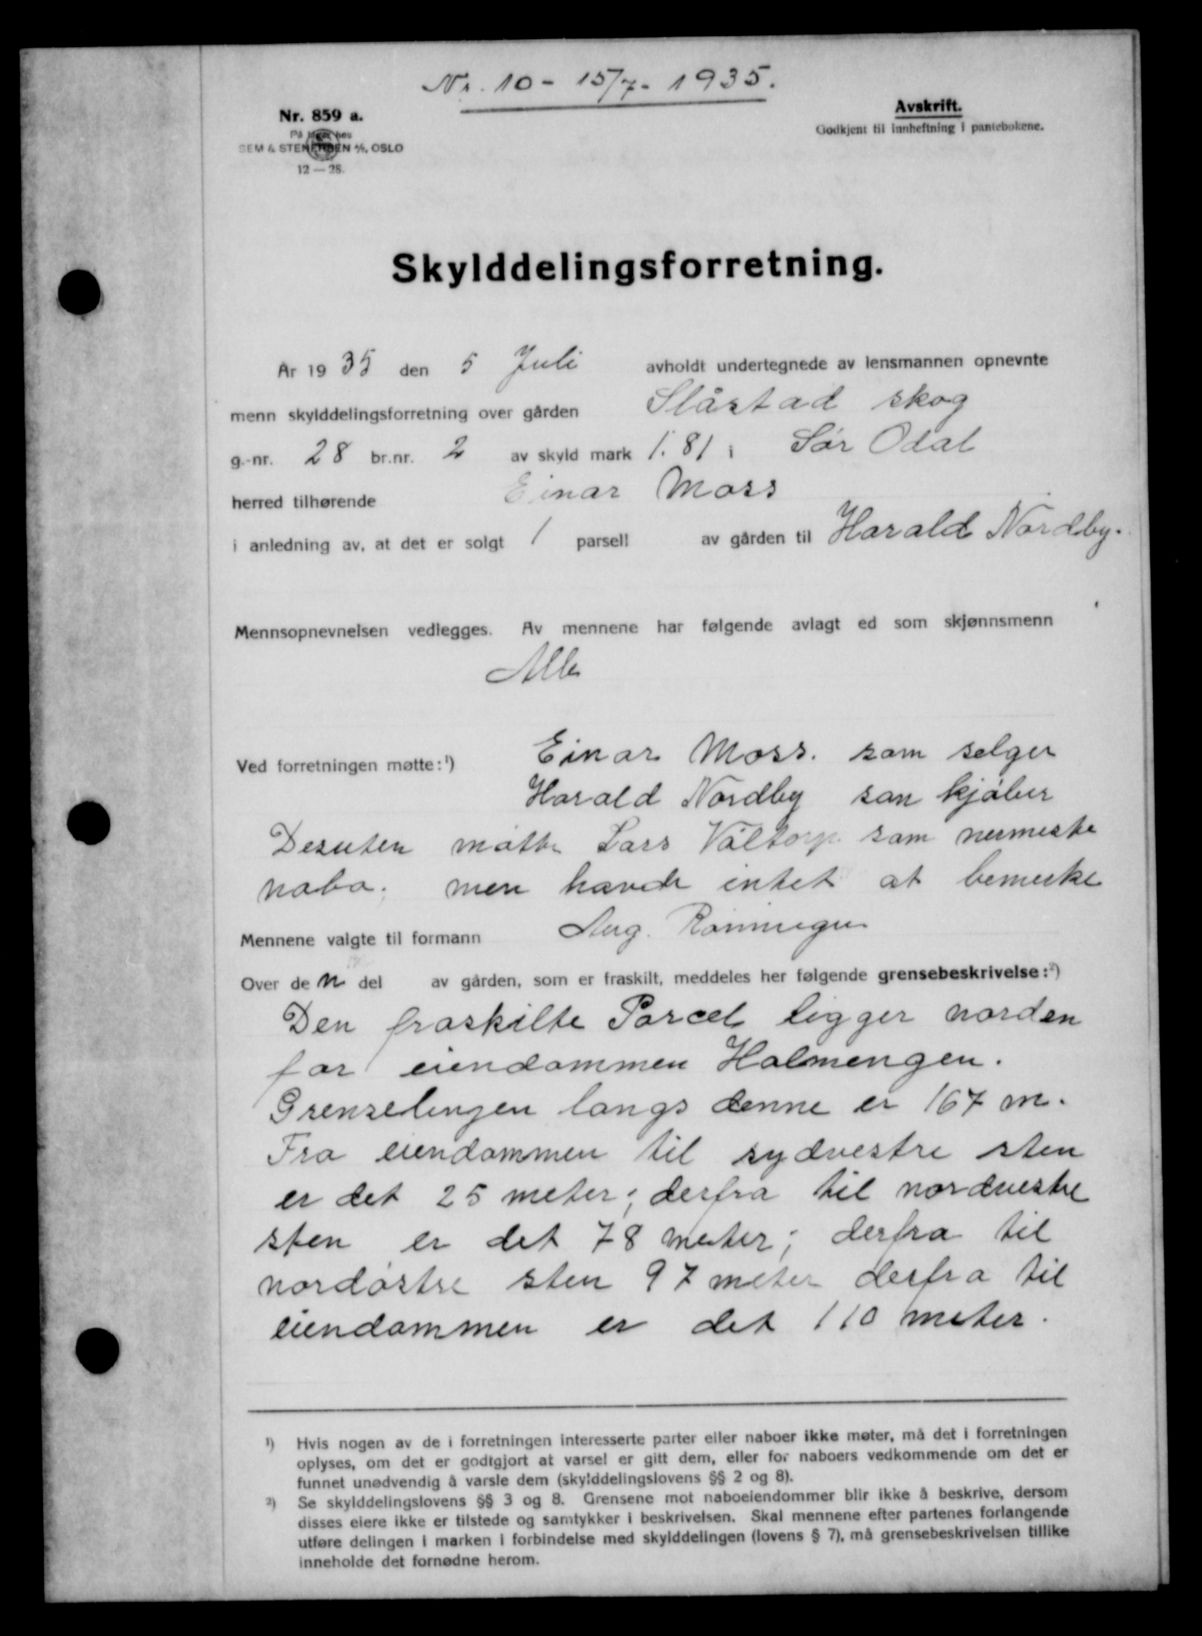 Nr. 10 - 15/7 - 1935.
Nr. 859 a.
På lager hos
SEM & STENERSEN A/S, OSLO
12 — 28.
Avskrift.
Godkjent til innheftning i pantebøkene.
Skylddelingsforretning.
År 1935 den 5 Juli avholdt undertegnede av lensmannen opnevnte
menn skylddelingsforretning over gården Slåstad skog
g.-nr. 28 br.nr. 2 av skyld mark 1.81 i Sør Odal
herred tilhørende Einar Moss
i anledning av, at det er solgt 1 parsell av gården til Harald Nordby.
Mennsopnevnelsen vedlegges. Av mennene har følgende avlagt ed som skjønnsmenn
Alle
Ved forretningen møtte:¹) Einar Moss. som selger
Harald Nordby som kjøber
Desuten møtte Lars Våltorp som nermeste
nabo. men havde intet at bemerke
Mennene valgte til formann Aug. Rønningen
Over den del av gården, som er fraskilt, meddeles her følgende grensebeskrivelse:²)
Den fraskilte Parcel ligger norden
for eiendommen Holmengen.
Grenselinjen langs denne er 167 m.
Fra eiendommen til sydvestre sten
er det 25 meter; derfra til nordvestre
sten er det 78 meter; derfra til
nordøstre sten 97 meter derfra til
eiendommen er det 110 meter.
¹) Hvis nogen av de i forretningen interesserte parter eller naboer ikke møter, må det i forretningen
oplyses, om det er godtgjort at varsel er gitt dem, eller for naboers vedkommende om det er
funnet unødvendig å varsle dem (skylddelingslovens §§ 2 og 8).
²) Se skylddelingslovens §§ 3 og 8. Grensene mot naboeiendommer blir ikke å beskrive, dersom
disses eiere ikke er tilstede og samtykker i beskrivelsen. Skal mennene efter partenes forlangende
utføre delingen i marken i forbindelse med skylddelingen (lovens § 7), må grensebeskrivelsen tillike
inneholde det fornødne herom.